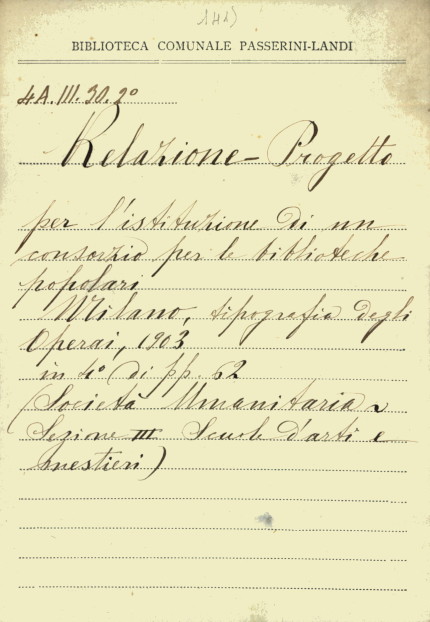 141)
BIBLIOTECA COMUNALE PASSERINI-LANDI
4A.III.30.2º
Relazione - Progetto
per l'istituzione di un
consorzio per le biblioteche
popolari
Milano, tipografia degli
Operai, 1903
in 4º di pp. 62
(Società Umanitaria
Sezione III Scuole d'arti e
mestieri)